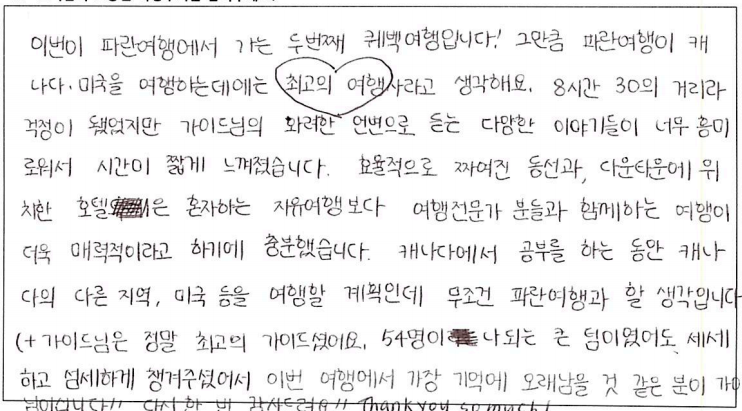 이번이 파란여행에서 가는 두번째 퀘백여행입니다! 그만큼 파란여행이 캐
나다·미국을 여행하는데에는 최고의 여행사라고 생각해요. 8시간 30의 거리라
걱정이 됐었지만 가이드님의 화려한 언변으로 듣는 다양한 이야기들이 너무 흥미
로워서 시간이 짧게 느껴졌습니다. 효율적으로 짜여진 동선과, 다운타운에 위
치한 호텔은 혼자하는 자유여행보다 여행전문가 분들과 함께하는 여행이
더욱 매력적이라고 하기에 충분했습니다. 캐나다에서 공부를 하는 동안 캐나
다의 다른 지역, 미국 등을 여행할 계획인데 무조건 파란여행과 할 생각입니다
(+가이드님은 정말 최고의 가이드셨어요. 54명이나되는 큰 팀이였어도 세세
하고 섬세하게 챙겨주셨어서 이번 여행에서 가장 기억에 오래남을 것 같은 분이 가이
드님입니다!! 다시 한 번 감사드려요!! Thank you so much!